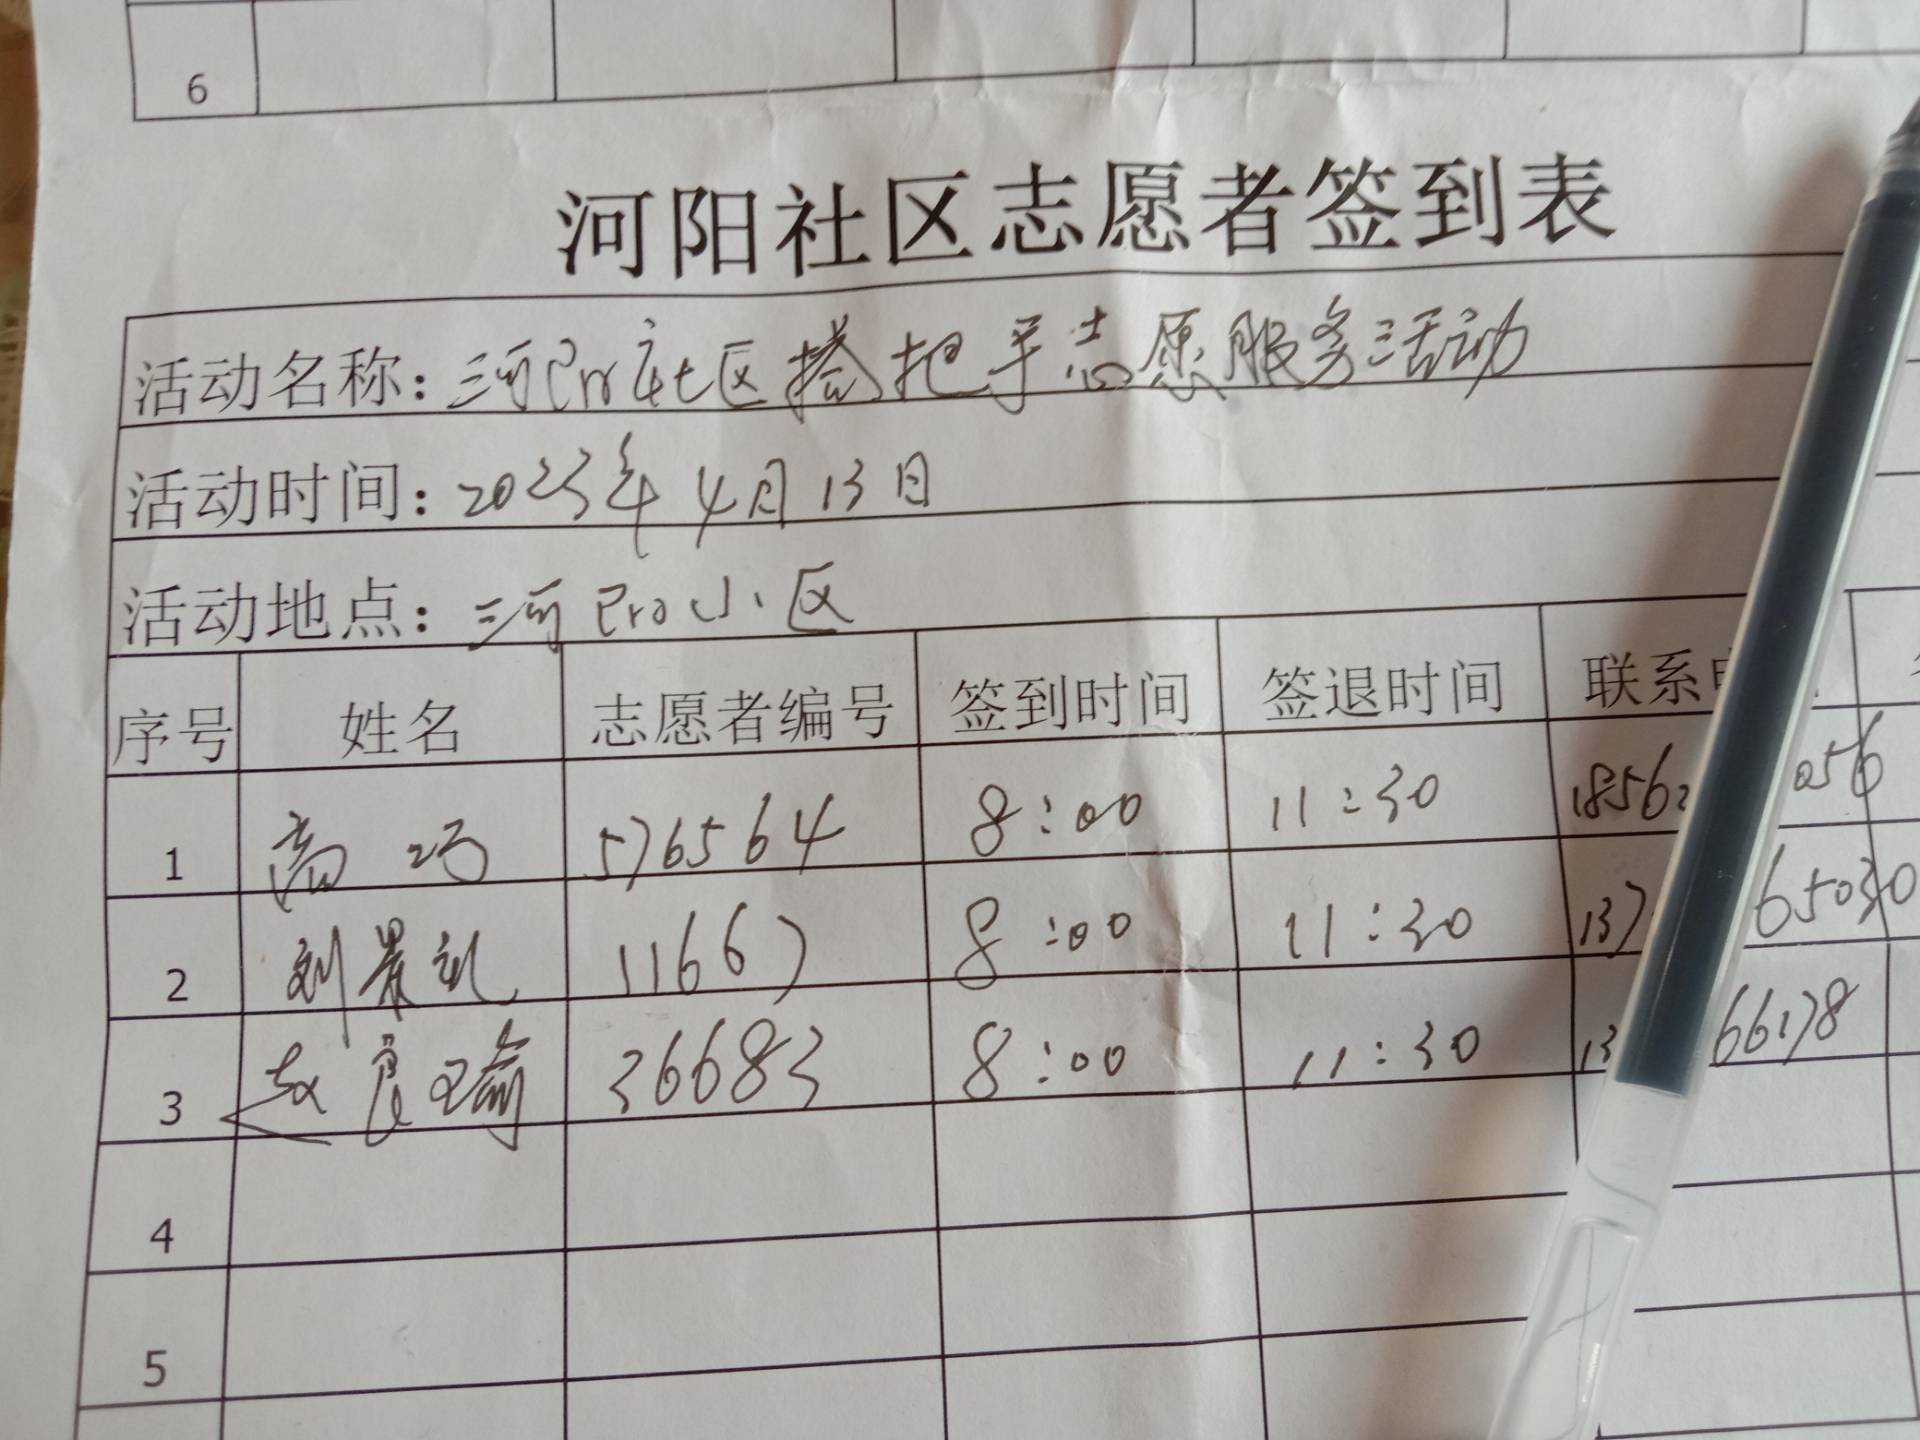 6
河阳社区志愿者签到表
活动名称：三河Pro社区搭把手志愿服务活动
活动时间：2023年4月13日
活动地点：三河Pro小区
序号 姓名 志愿者编号 签到时间 签退时间 联系
1 高巧 576564 8:00 11:30 1856 056
2 刘景礼 11667 8:00 11:30 137 65030
3 赵良瑜 36683 8:00 11:30 13 66178
4
5